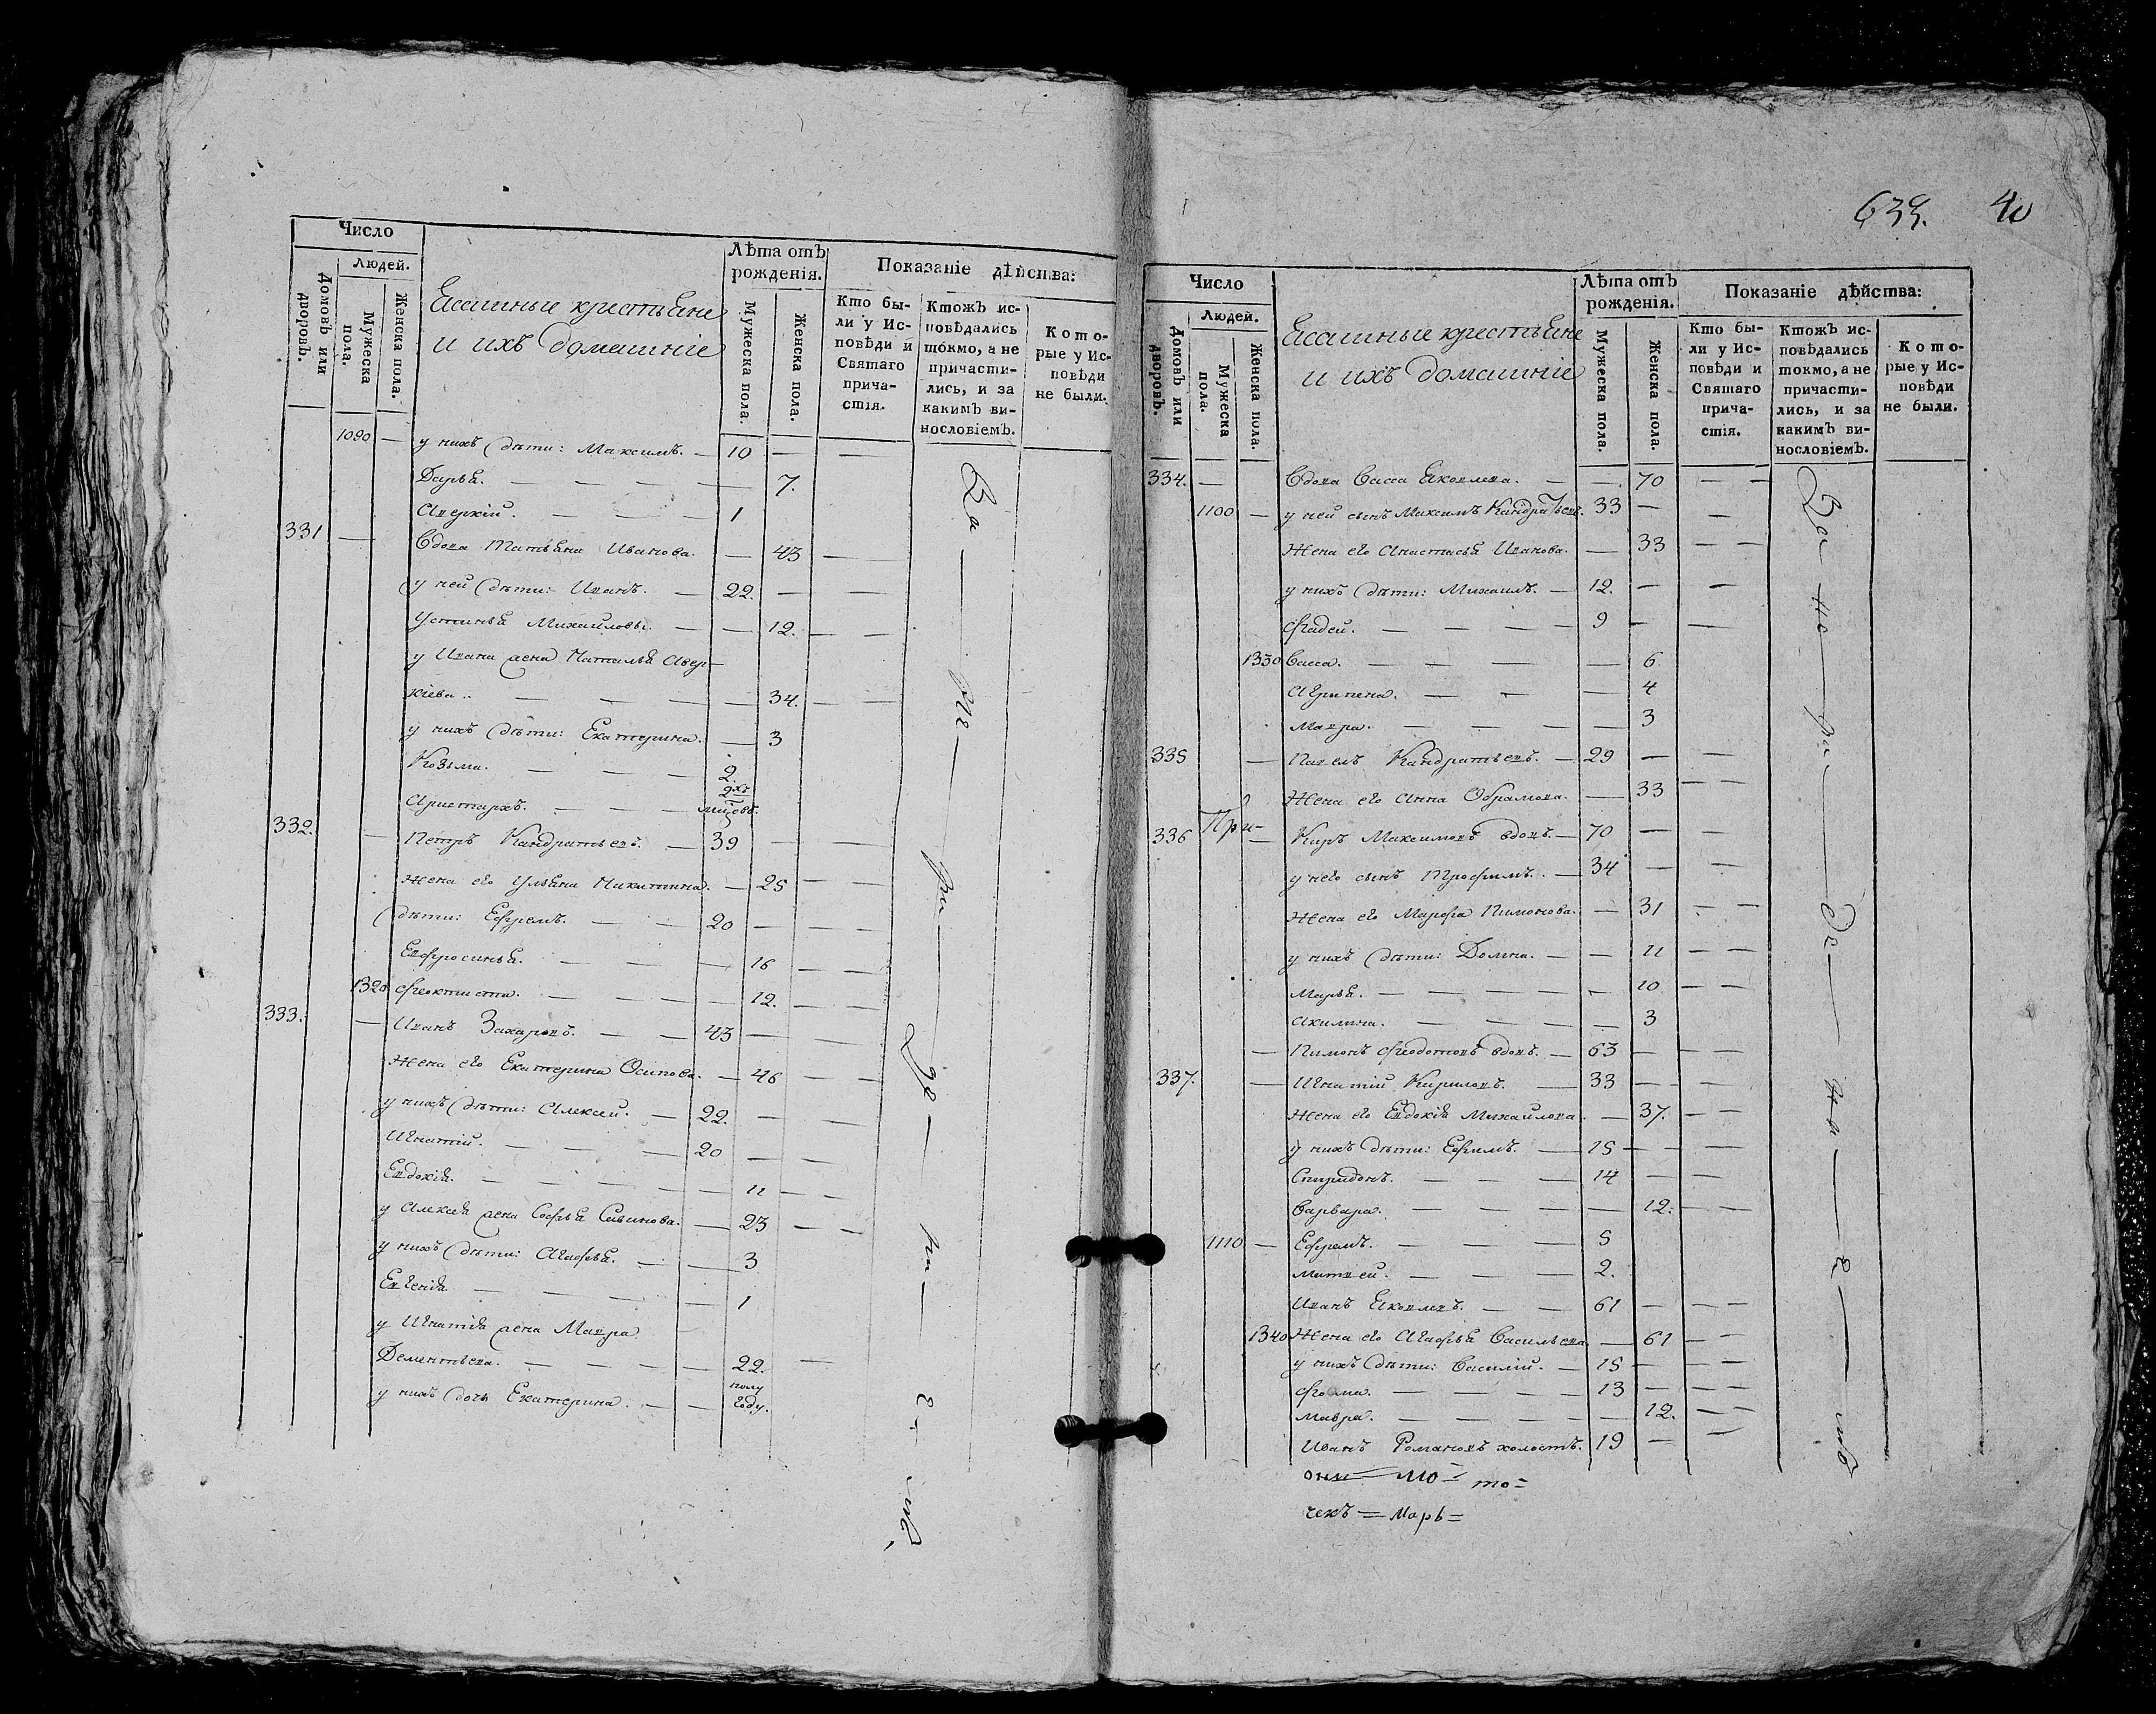 Число
Людей.
Домовъ или дворовъ.
Мужеска пола.
Женска пола.
Ясашные крестьяне
и ихъ домашніе
Лѣта отъ
рожденія.
Мужеска пола.
Женска пола.
Показаніе дѣйства:
Кто бы-
ли у Ис-
повѣди и
Святаго
прича-
стія.
Ктожъ ис-
повѣдались
токмо, а не
причасти-
лись, и за
какимъ ви-
нословіемъ.
Кото-
рые у Ис-
повѣди
не были.
1090 — у нихъ дѣти: Максимъ. — 10 — —
Дарья. — — — — — 7.
Аверкій. — — — 1
331 — Вдова Татьяна Иванова. — 43 —
у ней дѣти: Иванъ. — 22. — —
Устинья Михайловы. — — 12. — —
у Ивана жена Наталья Авер-
кіева. — — — — 34. — —
у нихъ дѣти: Екатерина. — 3
Козьма. — — — 2.
Аристархъ. — — — 2хъ мѣсяц.
332. — Петръ Кандратьевъ. — 39 — —
Жена его Ульяна Никитина. — 25 — —
дѣти: Ефремъ. — — 20 — — —
Евфросинья. — — — 16 — —
1320 Феоктиста. — — — — 12. — —
333. — Иванъ Захаровъ. — — 43 — —
Жена его Екатерина Осипова. — 46 — —
у нихъ дѣти: Алексей. — 22. — —
Игнатій. — — — 20 — —
Евдокія. — — — — — 11 — —
у Алексея жена Софья Савинова. — 23 — —
у нихъ дѣти: Агафья. — — 3
Евгенія — — — — 1
у Игнатія жена Мавра
Дементьева. — — — — 22. —
у нихъ дочь Екатерина. — — полу году.
639. 40
Число
Людей.
Домовъ или дворовъ.
Мужеска пола.
Женска пола.
Ясашные крестьяне
и ихъ домашніе
Лѣта отъ
рожденія.
Мужеска пола.
Женска пола.
Показаніе дѣйства:
Кто бы-
ли у Ис-
повѣди и
Святаго
прича-
стія.
Ктожъ ис-
повѣдались
токмо, а не
причасти-
лись, и за
какимъ ви-
нословіемъ.
Кото-
рые у Ис-
повѣди
не были.
334. — Вдова Васса Яковлева. — — 70 — —
1100 — у ней сынъ Максимъ Кандратьевъ. 33 — —
Жена его Анастасья Иванова. — 33 — —
у нихъ дѣти: Михаилъ. — 12. — —
Фадей. — — — — 9 — —
1330 Васса. — — — — 6
Агрипена. — — — 4
Мавра. — — — — 3
335 — Павелъ Кандратьевъ. — 29 — —
Жена его Анна Обрамова. — 33 — —
При-
336 — Киръ Максимовъ вдовъ. — 70 — —
у него сынъ Трофимъ. — 34 — —
Жена его Марфа Пимонова. — 31 — —
у нихъ дѣти: Домна. — — 11 — —
Марья. — — — — — 10 — —
Акилина. — — — — 3
— Пимонъ Феодотовъ вдовъ. — 63 — — —
337. — Игнатій Кириловъ. — 33 — — —
Жена его Евдокія Михайлова. — 37. — —
у нихъ дѣти: Ефимъ. — 15 — — —
Спиридонъ. — — — 14 — —
Варвара. — — — — 12. — —
1110 — Ефремъ. — — — 5
Матвей. — — — 2.
Иванъ Яковлевъ. — — 61 — — —
1340 Жена его Агафья Васильева — 61 — —
у нихъ дѣти: Василій. — 15 — — —
Фома. — — — — 13 — — —
Мавра. — — — — — 12. — —
Иванъ Романовъ холостъ. 19 — —
чекъ = Марь=